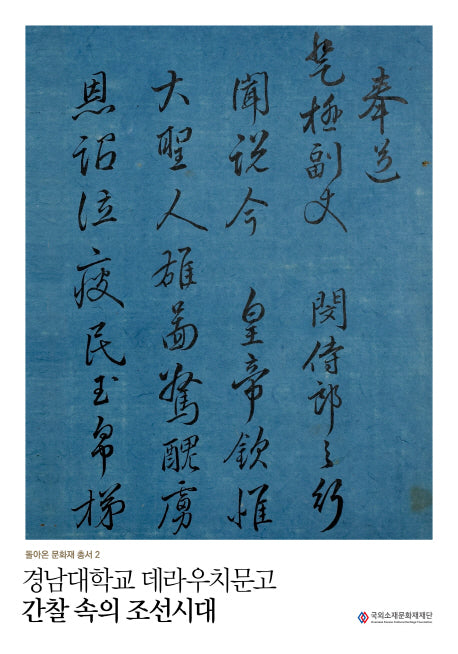 奉送
登極副使 閔侍郎之行
聞說今 皇帝欽惟
大聖人雄啚驚醜虜
恩詔泣疲民玉帛梯
돌아온 문화재 총서 2
경남대학교 데라우치문고
간찰 속의 조선시대
국외소재문화재재단
Overseas Korean Cultural Heritage Foundation